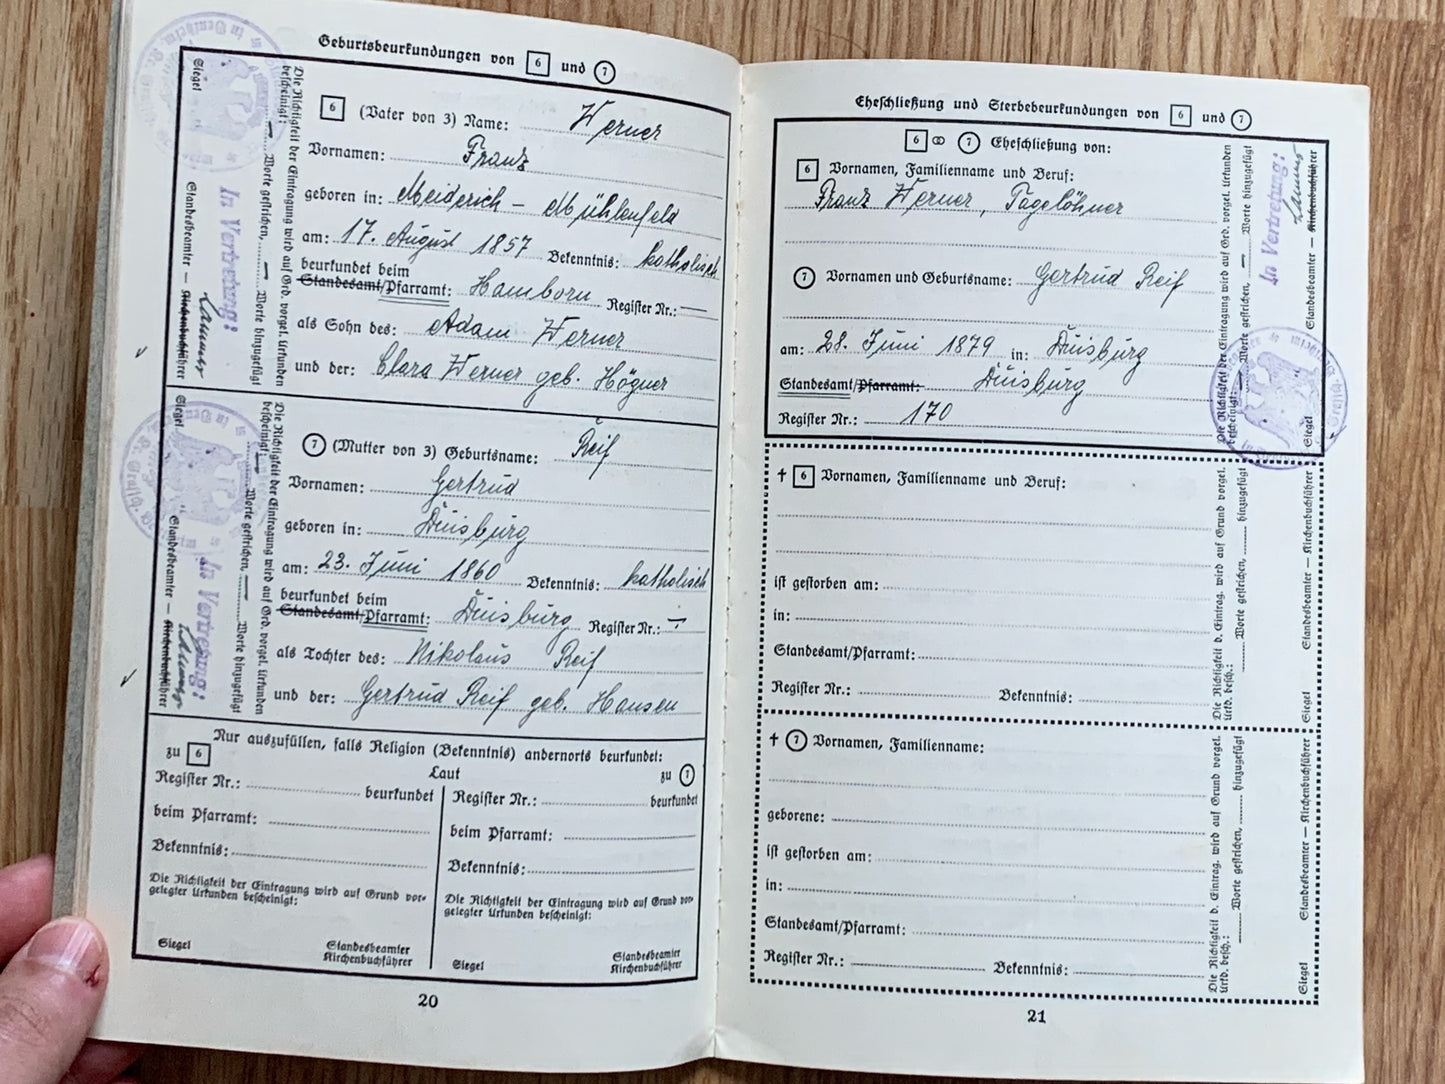 Geburtsbeurkundungen von 6 und 7
6 (Vater von 3) Name: Werner
Vornamen: Franz
geboren in: Meiderich - Mühlenfeld
am: 17. August 1857 Bekenntnis: katholisch
beurkundet beim
Standesamt/Pfarramt: Hamborn Register Nr.: —
als Sohn des: Adam Werner
und der: Clara Werner geb. Högner
Die Richtigkeit der Eintragung wird auf Grd. vorgel. Urkunden
bescheinigt: — Worte gestrichen, — Worte hinzugefügt
In Vertretung:
Siegel Standesbeamter — Kirchenbuchführer
7 (Mutter von 3) Geburtsname: Reif
Vornamen: Gertrud
geboren in: Duisburg
am: 23. Juni 1860 Bekenntnis: katholisch
beurkundet beim
Standesamt/Pfarramt: Duisburg Register Nr.: ÷
als Tochter des: Nikolaus Reif
und der: Gertrud Reif geb. Hansen
Die Richtigkeit der Eintragung wird auf Grd. vorgel. Urkunden
bescheinigt: — Worte gestrichen, — Worte hinzugefügt
In Vertretung:
Siegel Standesbeamter — Kirchenbuchführer
Nur auszufüllen, falls Religion (Bekenntnis) andernorts beurkundet:
zu 6 Laut zu 7
Register Nr.: beurkundet
beim Pfarramt:
Bekenntnis:
Die Richtigkeit der Eintragung wird auf Grund vor-
gelegter Urkunden bescheinigt:
Siegel Standesbeamter
Kirchenbuchführer
Register Nr.: beurkundet
beim Pfarramt:
Bekenntnis:
Die Richtigkeit der Eintragung wird auf Grund vor-
gelegter Urkunden bescheinigt:
Siegel Standesbeamter
Kirchenbuchführer
20
Eheschließung und Sterbebeurkundungen von 6 und 7
6 ⚭ 7 Eheschließung von:
6 Vornamen, Familienname und Beruf:
Franz Werner, Tagelöhner
7 Vornamen und Geburtsname: Gertrud Reif
am: 28. Juni 1879 in: Duisburg
Standesamt/Pfarramt: Duisburg
Register Nr.: 170
Die Richtigkeit der Eintragung wird auf Grd. vorgel. Urkunden
bescheinigt: — Worte gestrichen, — Worte hinzugefügt
In Vertretung:
Siegel Standesbeamter — Kirchenbuchführer
† 6 Vornamen, Familienname und Beruf:
ist gestorben am:
in:
Standesamt/Pfarramt:
Register Nr.: Bekenntnis:
Die Richtigkeit d. Eintrag. wird auf Grund vorgel.
Urkd. besch.: Worte gestrichen, hinzugefügt
Siegel Standesbeamter — Kirchenbuchführer
† 7 Vornamen, Familienname:
geborene:
ist gestorben am:
in:
Standesamt/Pfarramt:
Register Nr.: Bekenntnis:
Die Richtigkeit d. Eintrag. wird auf Grund vorgel.
Urkd. besch.: Worte gestrichen, hinzugefügt
Siegel Standesbeamter — Kirchenbuchführer
21